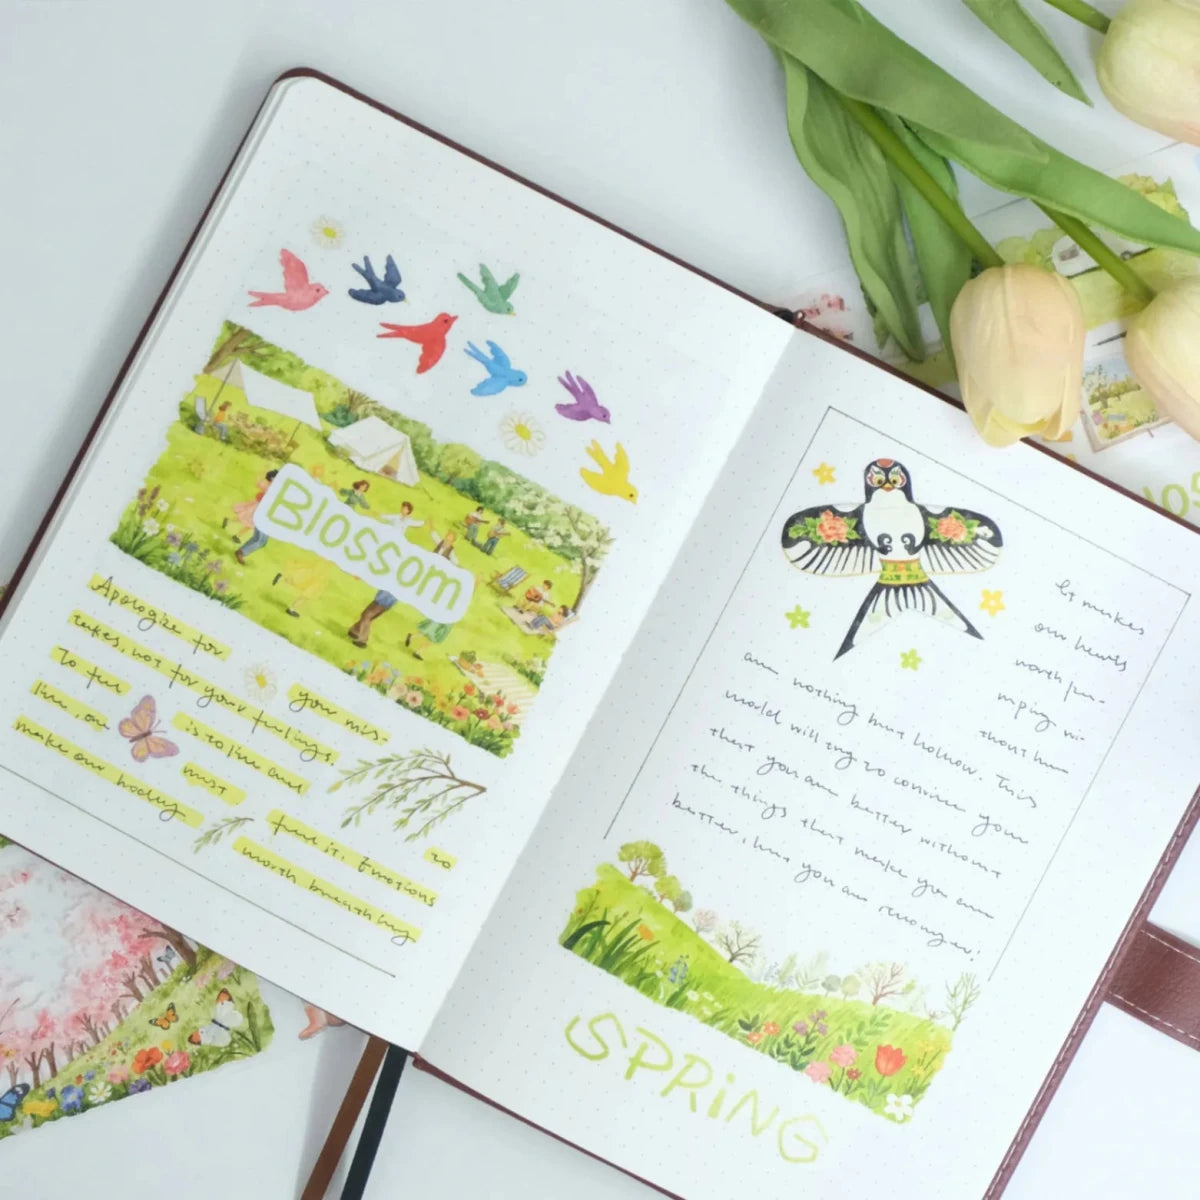 Blossom
Apologize for your mis-
takes, not for your feelings.
To feel is to live and
live, our must to
make our bodies feel it. Emotions
worth breathing
It makes
our hearts
worth pum-
mping wi-
thout hum
are nothing but hollow. This
world will try to convince you
that you are better without
the things that make you
better, but you are stronger.
SPRiNG